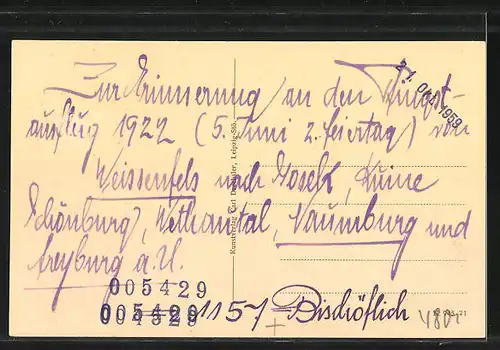 Zur Erinnerung an den Pfingst-
ausflug 1922 (5. Juni 2. Feiertag) von
Weissenfels nach Goseck, Ruine
Schönburg, Wethautal, Naumburg und
Freyburg a. U.
21. Okt. 1959
Kunstverlag Carl Leipzig-Stö.
005429
004329
1157
Bischöflich